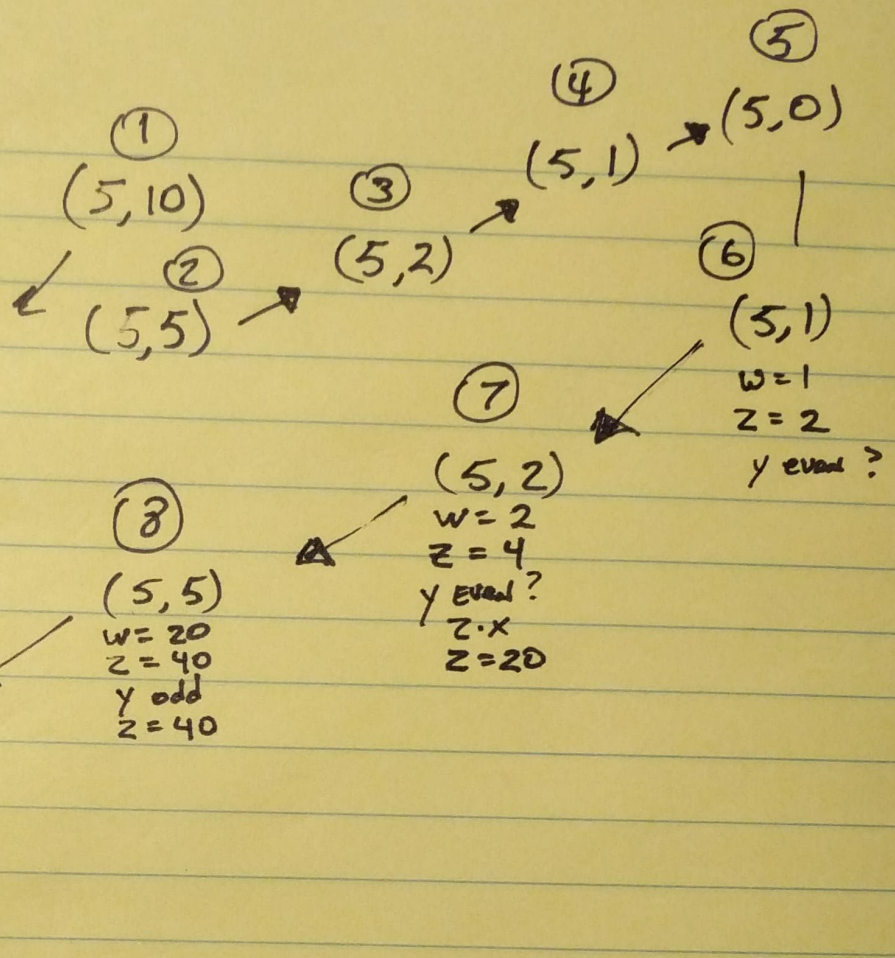 1
(5,10)
2
(5,5)
3
(5,2)
4
(5,1)
5
(5,0)
6
(5,1)
w=1
z=2
y even?
7
(5,2)
w=2
z=4
y even?
z·x
z=20
8
(5,5)
w=20
z=40
y odd
z=40